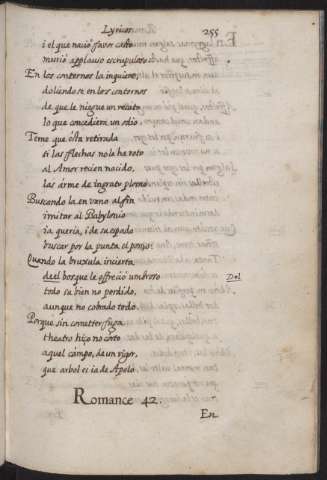 Lyricos
255
i el que naciò favor casto
muriò applauso escrupuloso.
En los contornos la inquiere,
doliendose en los contornos
de que le niegue un recato
lo que concediera un odio.
Teme que està retirada
si las flechas no la ha roto
al Amor recien nacido,
las arme de ingrato plomo
Buscando la en vano al fin
imitar al Babylonio
ia queria, i de su espada
buscar por la punta el pomo:
Quando la bruxula incierta
del bosque le offreciò umbroso
Del
todo su bien no perdido,
aunque no cobrado todo.
Porque sin cometter fuga
theatro hizo no corto
aquel campo, de un rigor,
que arbol es ia de Apolo
Romance 42.
En